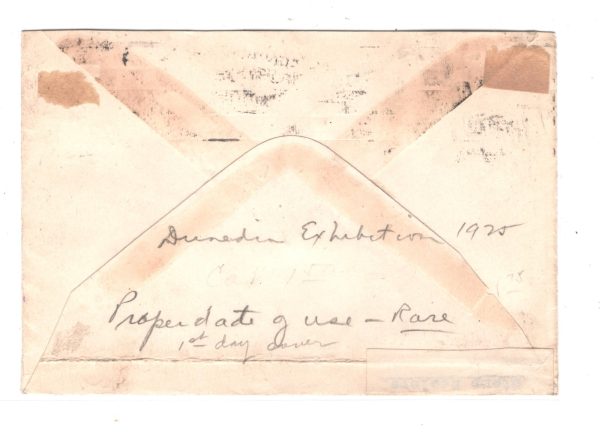 Dunedin Exhibition 1925
Cat. 1
Proper date of use - Rare
1st day cover